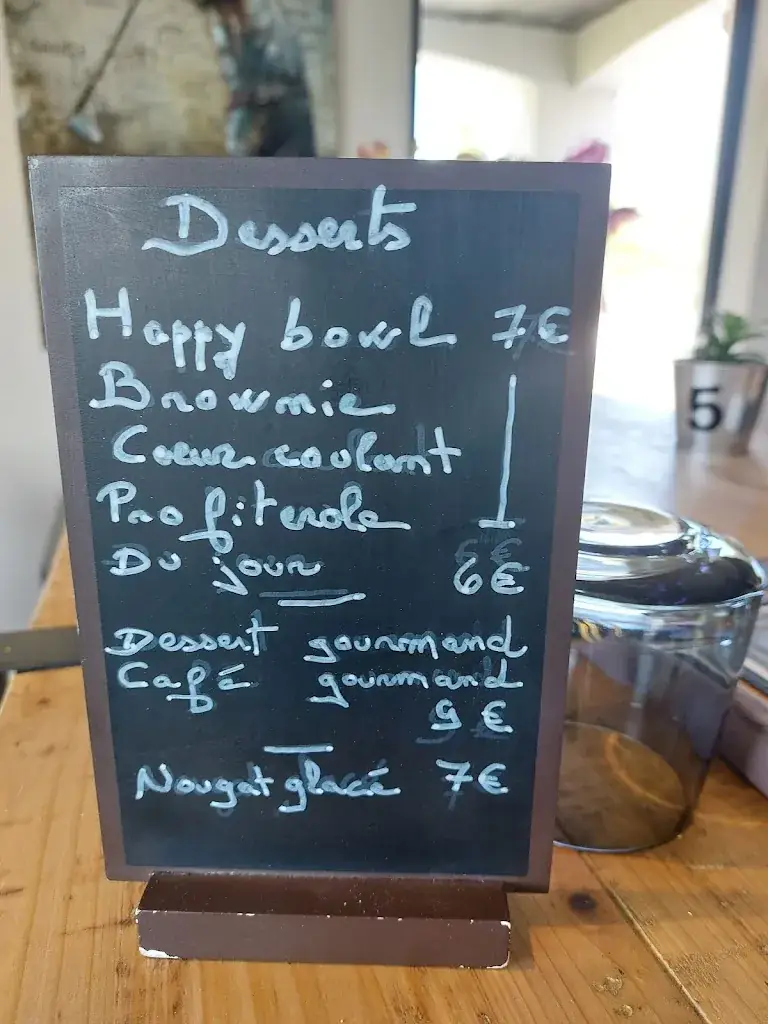 Desserts
Happy bowl 7€
Brownie
Coeur coulant
Profiterole
Du jour 6€
Dessert gourmand
Café gourmand
9€
Nougat glacé 7€
5